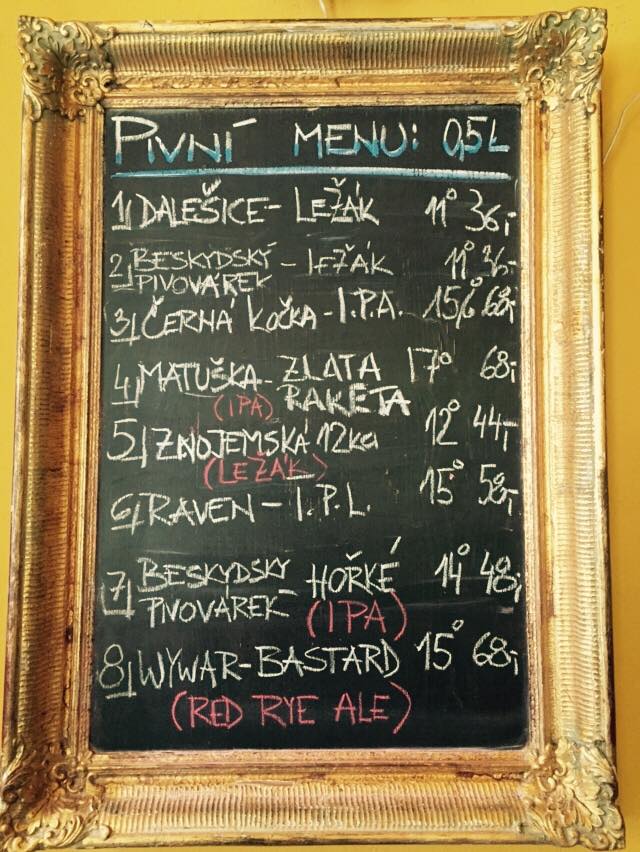 PIVNÍ MENU: 0,5L
1) DALEŠICE - LEŽÁK 11° 36,-
2) BESKYDSKÝ PIVOVÁREK - LEŽÁK 11° 36,-
3) ČERNÁ KOČKA - I.P.A. 15° 68,-
4) MATUŠKA - ZLATA RAKETA 17° 68,-
(IPA)
5) ZNOJEMSKÁ 12ka 12° 44,-
(LEŽÁK)
6) RAVEN - I.P.L. 15° 58,-
7) BESKYDSKÝ PIVOVÁREK HOŘKÉ 14° 48,-
(IPA)
8) WYWAR-BASTARD 15° 68,-
(RED RYE ALE)